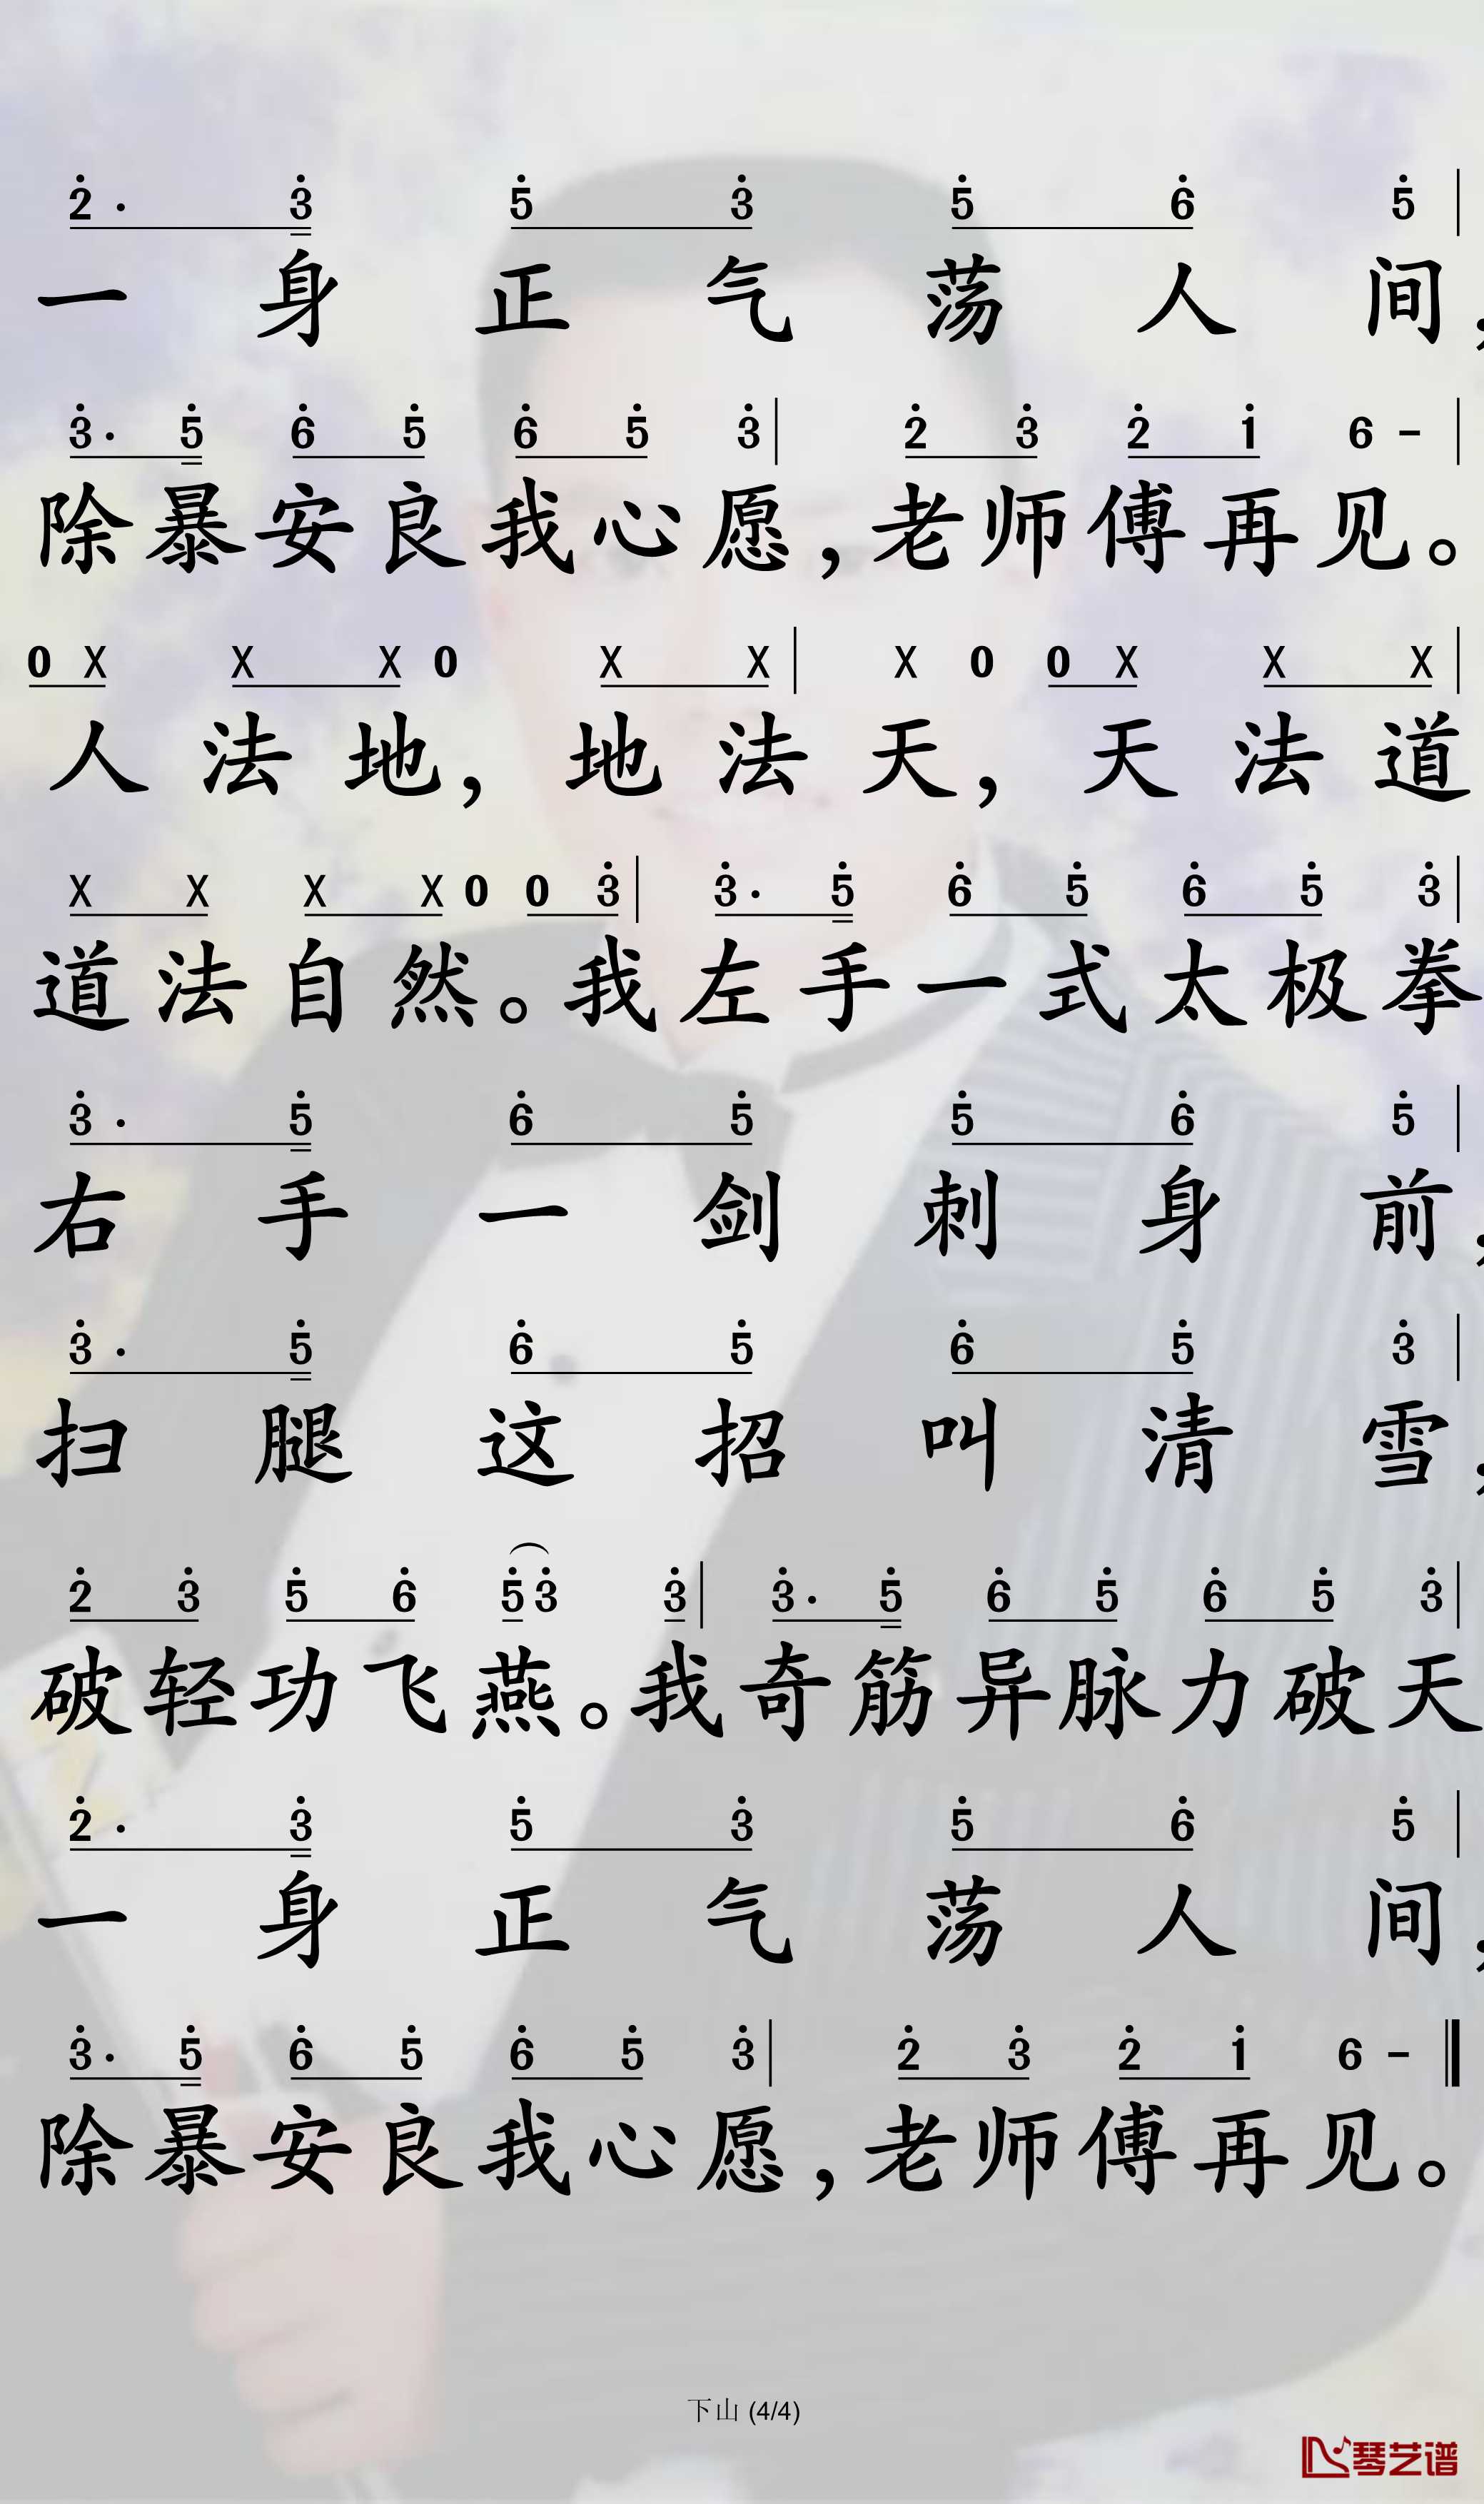 2̇ · 3̇ 5̇ 3̇ 5̇ 6̇ 5̇ |
一 身 正 气 荡 人 间,
3̇ · 5̇ 6̇ 5̇ 6̇ 5̇ 3̇ | 2̇ 3̇ 2̇ 1̇ 6 - |
除暴安良我心愿,老师傅再见。
0 X X X 0 X X | X 0 0 X X X |
人 法 地, 地 法 天, 天 法 道
X X X X 0 0 3̇ | 3̇ · 5̇ 6̇ 5̇ 6̇ 5̇ 3̇ |
道法自然。我左手一式太极拳
3̇ · 5̇ 6̇ 5̇ 5̇ 6̇ 5̇ |
右 手 一 剑 刺 身 前,
3̇ · 5̇ 6̇ 5̇ 6̇ 5̇ 3̇ |
扫 腿 这 招 叫 清 雪,
2̇ 3̇ 5̇ 6̇ 5̇ 3̇ 3̇ | 3̇ · 5̇ 6̇ 5̇ 6̇ 5̇ 3̇ |
破轻功飞燕。我奇筋异脉力破天
2̇ · 3̇ 5̇ 3̇ 5̇ 6̇ 5̇ |
一 身 正 气 荡 人 间,
3̇ · 5̇ 6̇ 5̇ 6̇ 5̇ 3̇ | 2̇ 3̇ 2̇ 1̇ 6 - ‖
除暴安良我心愿,老师傅再见。
下山 (4/4)
琴艺谱